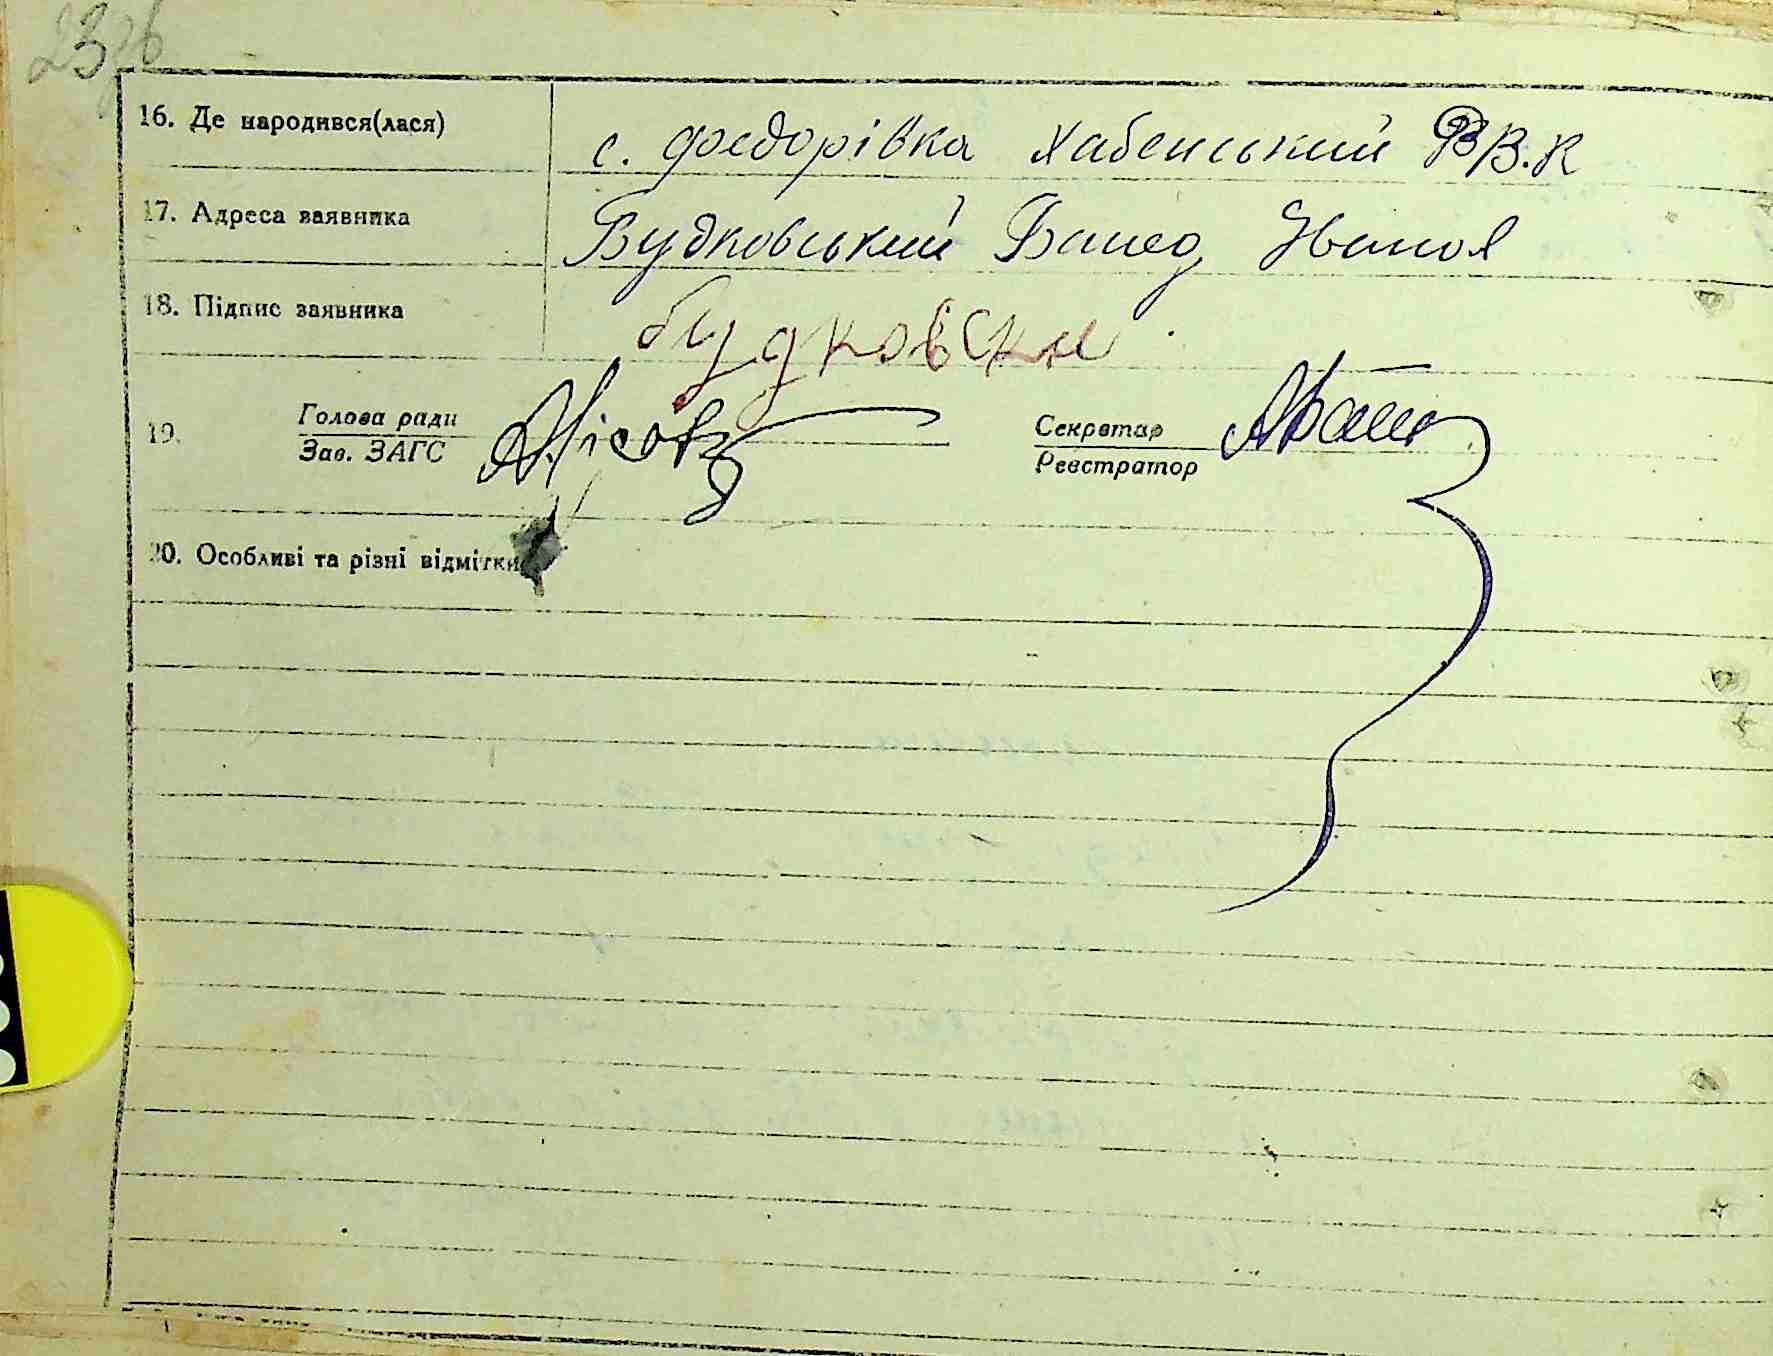 23зв
16. Де народився(лася) с. Федорівка Хабенський РВ.К
17. Адреса заявника Будковський Іванов
18. Підпис заявника будковски
19. Голова ради Секретар
Зав. ЗАГС Реєстратор
20. Особливі та різні відмітки